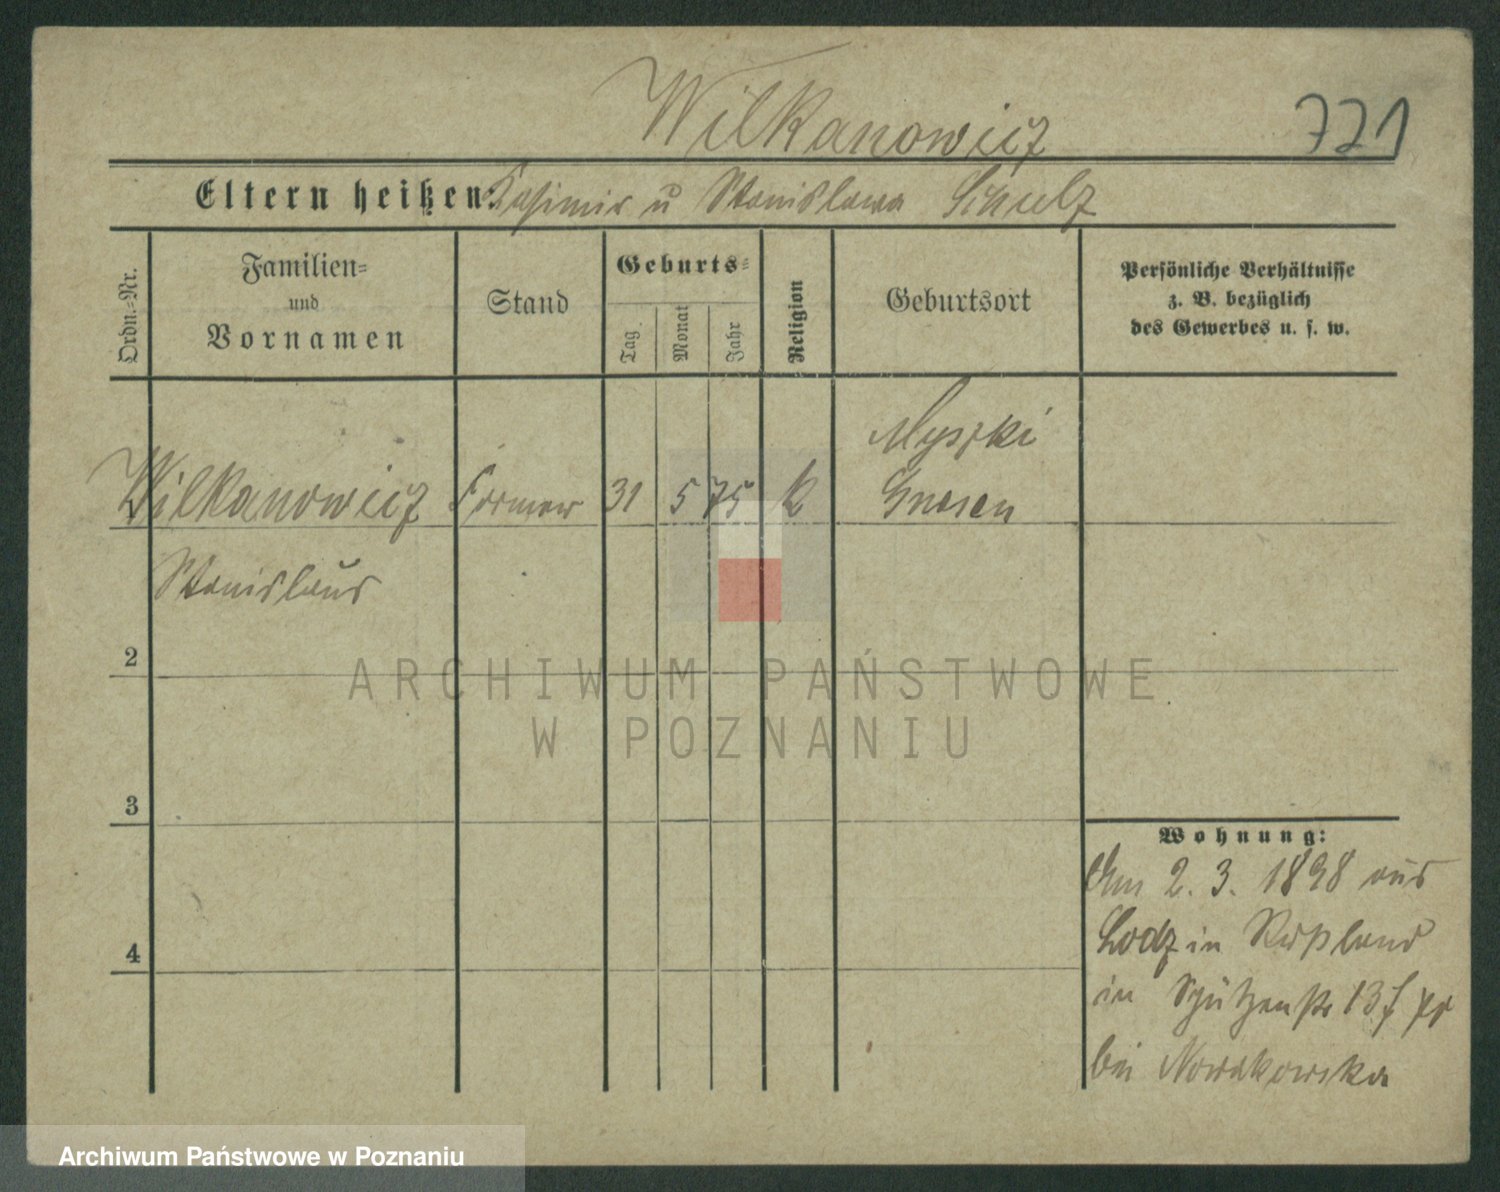 Wilkanowicz
771
Eltern heißen: Kasimir u Stanislawa Schulz
Ordn.-Nr.
Familien-
und
Vornamen
Stand
Geburts-
Tag
Monat
Jahr
Religion
Geburtsort
Persönliche Verhältnisse
z. B. bezüglich
des Gewerbes u. s. w.
Myszki
1 Wilkanowicz Former 31 5 75 k Gnesen
Stanislaus
2
3
4
Wohnung:
Am 2. 3. 1898 aus
Lodz in Rußland
in Schützenstr 13
bei Nowakowska
ARCHIWUM PAŃSTWOWE
W POZNANIU
Archiwum Państwowe w Poznaniu